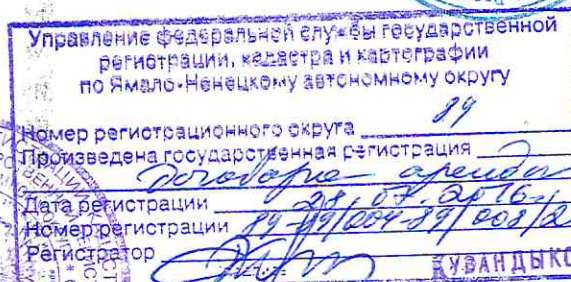 Управление федеральной службы государственной
регистрации, кадастра и картографии
по Ямало-Ненецкому автономному округу
Номер регистрационного округа 89
Произведена государственная регистрация
договора аренды
Дата регистрации 2016
Номер регистрации 89-89/004-89/008/2
Регистратор
КУВАНДЫКО